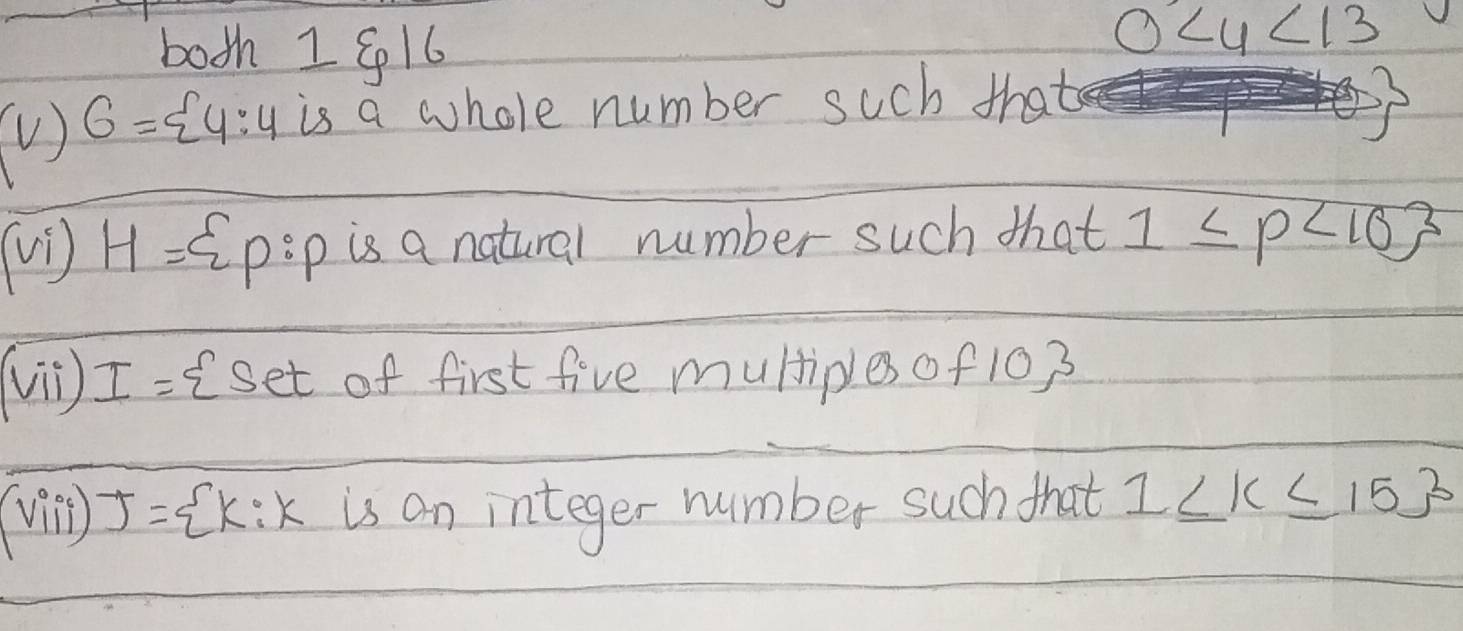 both 1 & 16
0<y<13
(v) G={y:y is a whole number such that }
(vi) H={p:p is a natural number such that 1 ≤ p<10}
(vii) I={set of first five multiples of 10}
(viii) J={k:k is an integer number such that 1≤k≤15}